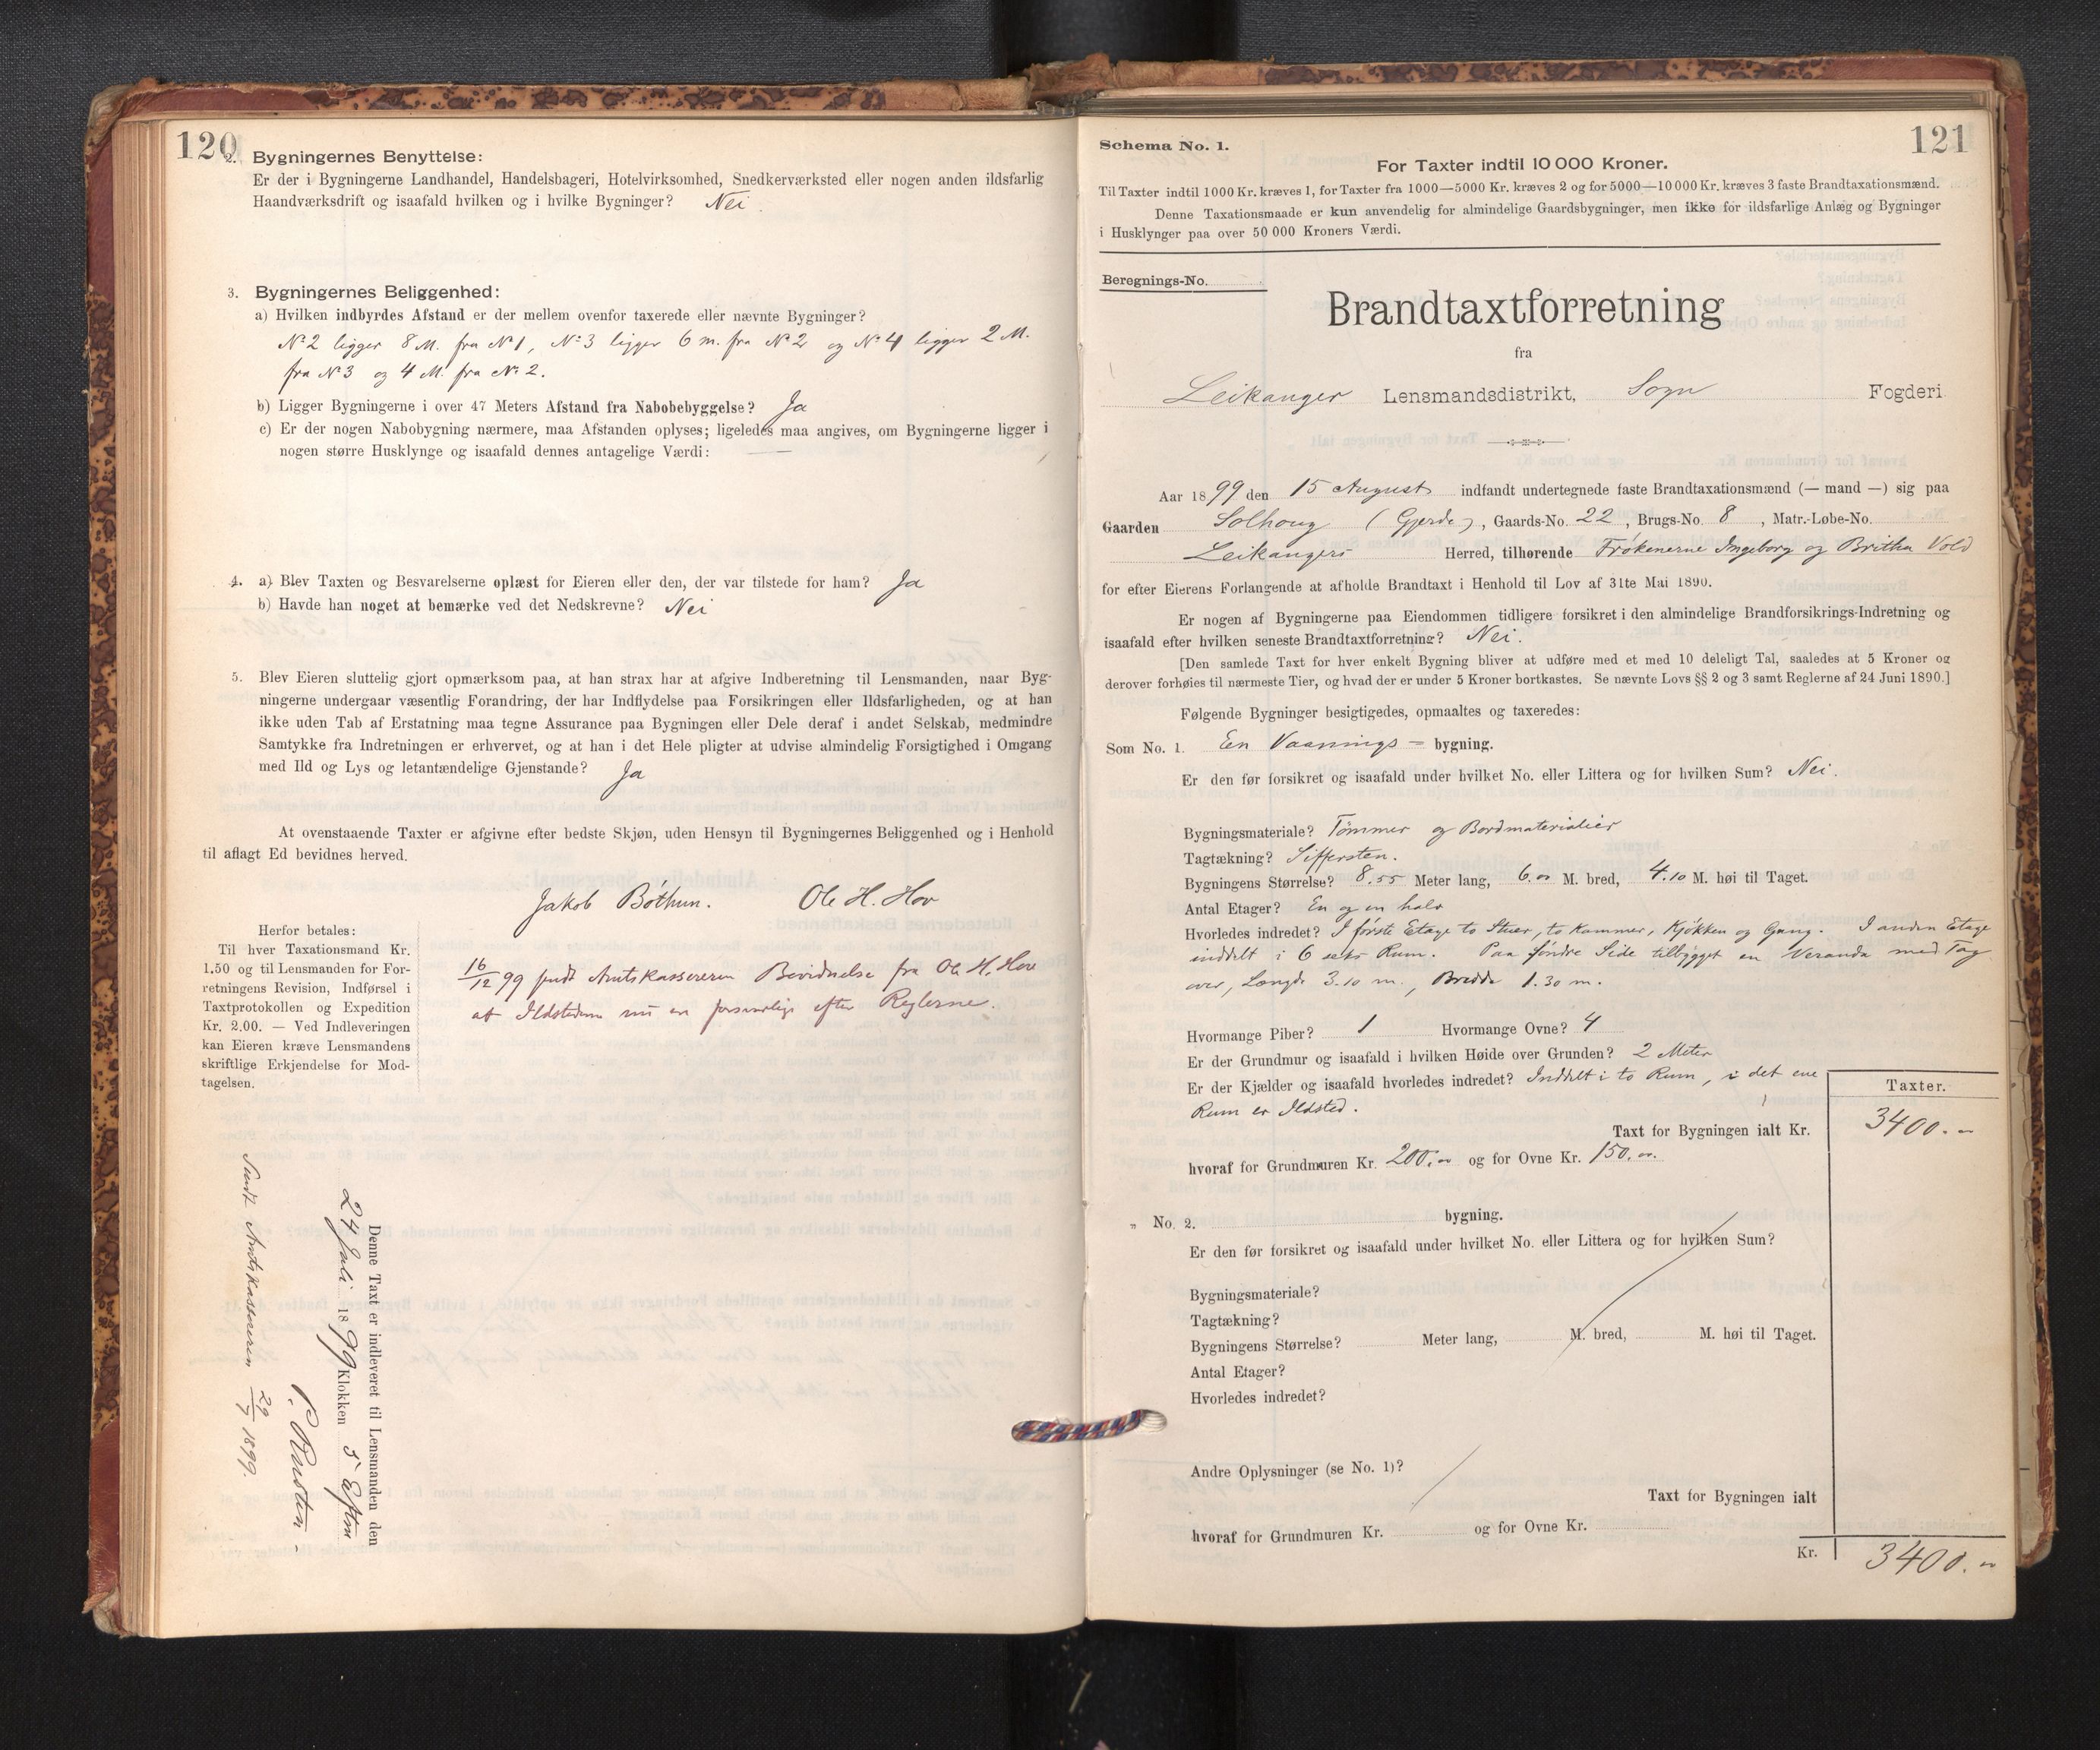 120
2. Bygningernes Benyttelse:
Er der i Bygningerne Landhandel, Handelsbageri, Hotelvirksomhed, Snedkerværksted eller nogen anden ildsfarlig
Haandværksdrift og isaafald hvilken og i hvilke Bygninger? Nei.
3. Bygningernes Beliggenhed:
a) Hvilken indbyrdes Afstand er der mellem ovenfor taxerede eller nævnte Bygninger?
No 2 ligger 8 M. fra No 1, No 3 ligger 6 m. fra No 2 og No 4 ligger 2 M.
fra No 3 og 4 M. fra No 2.
b) Ligger Bygningerne i over 47 Meters Afstand fra Nabobebyggelse? Ja
c) Er der nogen Nabobygning nærmere, maa Afstanden oplyses; ligeledes maa angives, om Bygningerne ligger i
nogen større Husklynge og isaafald dennes antagelige Værdi: —
4. a) Blev Taxten og Besvarelserne oplæst for Eieren eller den, der var tilstede for ham? Ja
b) Havde han noget at bemærke ved det Nedskrevne? Nei
5. Blev Eieren sluttelig gjort opmærksom paa, at han strax har at afgive Indberetning til Lensmanden, naar Byg-
ningerne undergaar væsentlig Forandring, der har Indflydelse paa Forsikringen eller Ildsfarligheden, og at han
ikke uden Tab af Erstatning maa tegne Assurance paa Bygningen eller Dele deraf i andet Selskab, medmindre
Samtykke fra Indretningen er erhvervet, og at han i det Hele pligter at udvise almindelig Forsigtighed i Omgang
med Ild og Lys og letantændelige Gjenstande? Ja
At ovenstaaende Taxter er afgivne efter bedste Skjøn, uden Hensyn til Bygningernes Beliggenhed og i Henhold
til aflagt Ed bevidnes herved.
Jakob Bøthun. Ole H. Hov
Herfor betales:
Til hver Taxationsmand Kr.
1.50 og til Lensmanden for For-
retningens Revision, Indførsel i
Taxtprotokollen og Expedition
Kr. 2.00. — Ved Indleveringen
kan Eieren kræve Lensmandens
skriftlige Erkjendelse for Mod-
tagelsen.
16/12 99 sendt Amtskassereren Bevidnelse fra Ole H. Hov
at Ildstederne nu er forsvarlige efter Reglerne.
Denne Taxt er indleveret til Lensmanden den
24 Juli 1899 Klokken 5 Eftm
Sendt Amtskassereren 29/7 1899.
121
Schema No. 1.
For Taxter indtil 10 000 Kroner.
Til Taxter indtil 1000 Kr. kræves 1, for Taxter fra 1000—5000 Kr. kræves 2 og for 5000—10 000 Kr. kræves 3 faste Brandtaxationsmænd.
Denne Taxationsmaade er kun anvendelig for almindelige Gaardsbygninger, men ikke for ildsfarlige Anlæg og Bygninger
i Husklynger paa over 50 000 Kroners Værdi.
Beregnings-No.
Brandtaxtforretning
fra
Leikanger Lensmandsdistrikt, Sogn Fogderi
Aar 1899 den 15 August indfandt undertegnede faste Brandtaxationsmænd (— mand —) sig paa
Gaarden Solhoug (Gjerde), Gaards-No. 22, Brugs-No. 8, Matr.-Løbe-No.
Leikangers Herred, tilhørende Frøkenerne Ingeborg og Britha Vold
for efter Eierens Forlangende at afholde Brandtaxt i Henhold til Lov af 31te Mai 1890.
Er nogen af Bygningerne paa Eiendommen tidligere forsikret i den almindelige Brandforsikrings-Indretning og
isaafald efter hvilken seneste Brandtaxtforretning? Nei.
[Den samlede Taxt for hver enkelt Bygning bliver at udføre med et med 10 deleligt Tal, saaledes at 5 Kroner og
derover forhøies til nærmeste Tier, og hvad der er under 5 Kroner bortkastes. Se nævnte Lovs §§ 2 og 3 samt Reglerne af 24 Juni 1890.]
Følgende Bygninger besigtigedes, opmaaltes og taxeredes:
Som No. 1. En Vaanings = bygning.
Er den før forsikret og isaafald under hvilket No. eller Littera og for hvilken Sum? Nei.
Bygningsmateriale? Tømmer og Bordmaterialier
Tagtækning? Siffersten.
Bygningens Størrelse? 8.55 Meter lang, 6.00 M. bred, 4.10 M. høi til Taget.
Antal Etager? En og en halv
Hvorledes indredet? I første Etage to Stuer, to Kammer, Kjøkken og Gang. I anden Etage
inddelt i 6 Rum. Paa søndre Side tilbygget en Veranda med Tag
over, Længde 3.10 m., Bredde 1.30 m.
Hvormange Piber? 1 Hvormange Ovne? 4
Er der Grundmur og isaafald i hvilken Høide over Grunden? 2 Meter
Er der Kjælder og isaafald hvorledes indredet? Inddelt i to Rum, i det ene
Rum er Ildsted.
Taxter.
Taxt for Bygningen ialt Kr. 3400.00
hvoraf for Grundmuren Kr. 200.00 og for Ovne Kr. 150.00.
„ No. 2. bygning.
Er den før forsikret og isaafald under hvilket No. eller Littera og for hvilken Sum?
Bygningsmateriale?
Tagtækning?
Bygningens Størrelse? Meter lang, M. bred, M. høi til Taget.
Antal Etager?
Hvorledes indredet?
Andre Oplysninger (se No. 1)?
Taxt for Bygningen ialt
hvoraf for Grundmuren Kr. og for Ovne Kr.
Kr. 3400.00